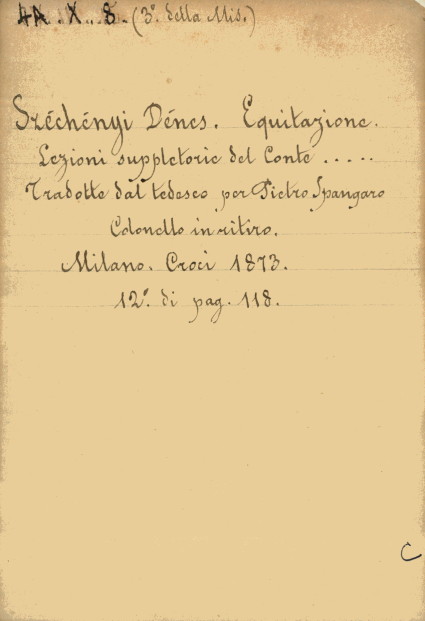 4A. X. 8. (3º. della Mis.)
Széchényi Dénes. Equitazione.
Lezioni suppletorie del Conte .....
Tradotte dal tedesco per Pietro Spangaro
Colonello in ritiro.
Milano. Croci 1873.
12º. di pag. 118.
C